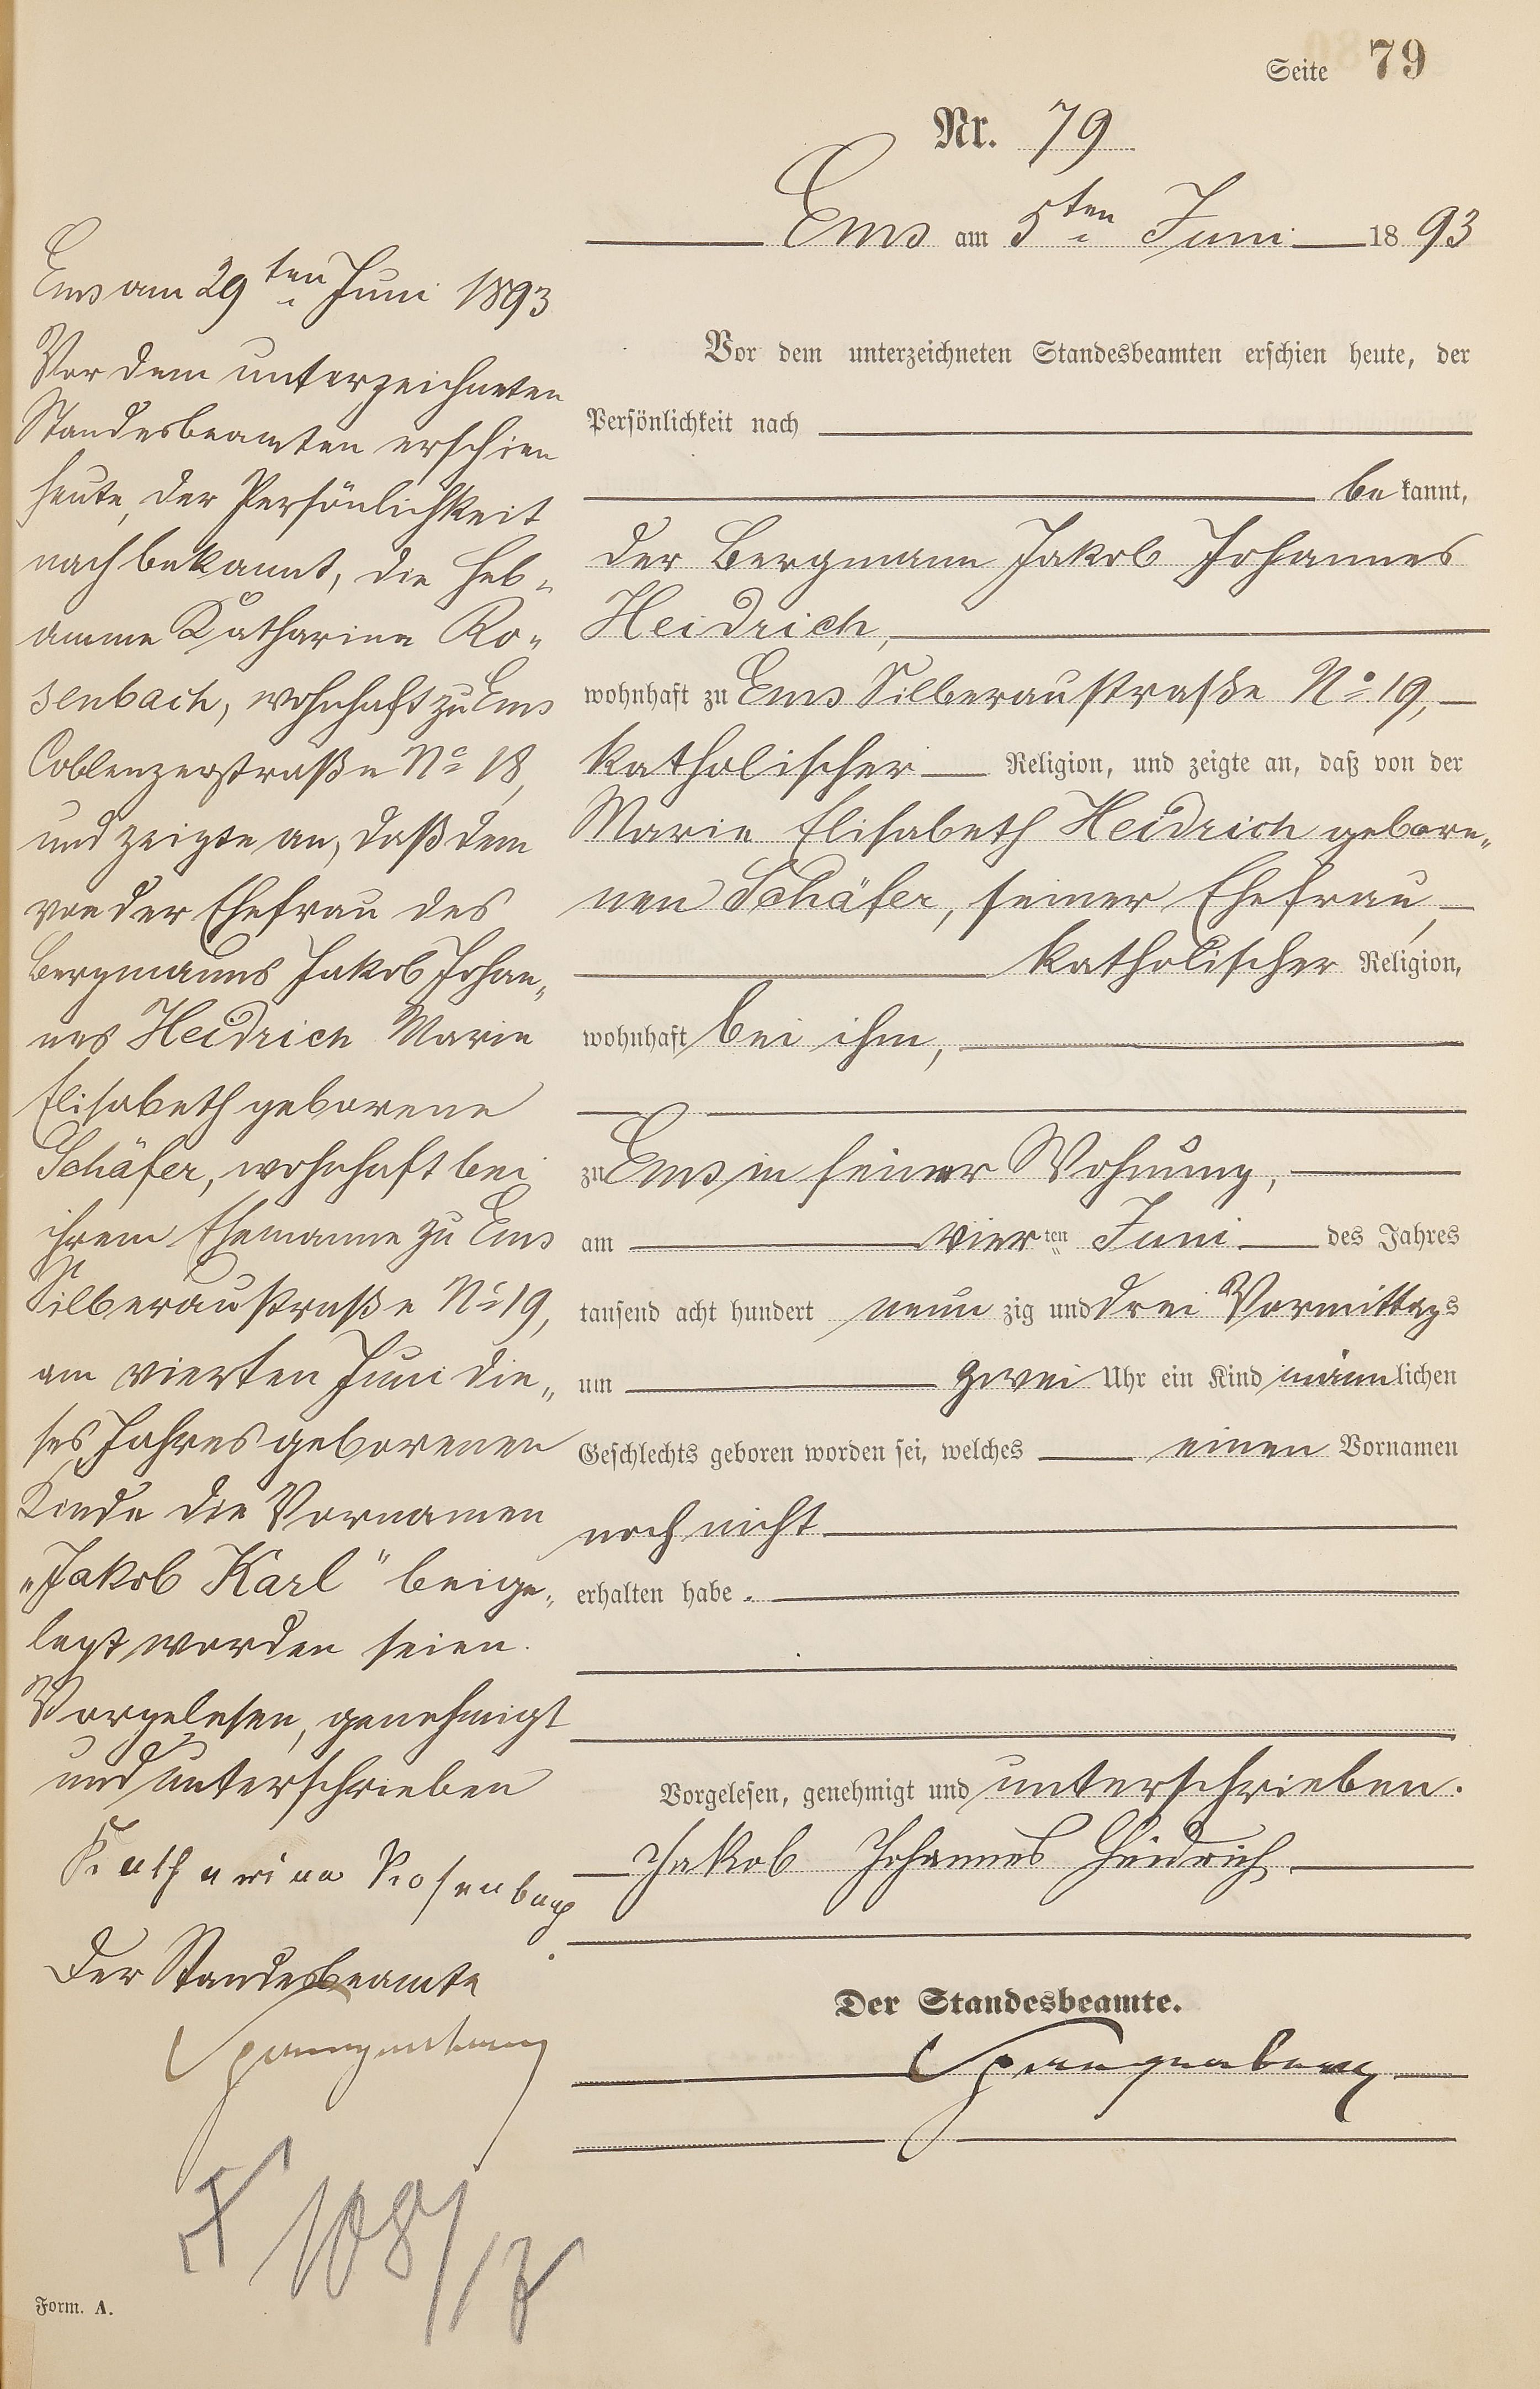 Seite 79
Nr. 79
Ems am 5ten Juni 1893
Vor dem unterzeichneten Standesbeamten erschien heute, der
Persönlichkeit nach
be kannt,
der Bergmann Jakob Johannes
Heidrich,
wohnhaft zu Ems Silberaustraße No 19,
katholischer Religion, und zeigte an, daß von der
Marie Elisabeth Heidrich gebore„
nen Schäfer, seiner Ehefrau,
katholischer Religion,
wohnhaft bei ihm,
zu Ems in seiner Wohnung,
am vier ten Juni des Jahres
tausend acht hundert neun zig und drei Vormittags
um zwei Uhr ein Kind männlichen
Geschlechts geboren worden sei, welches einen Vornamen
noch nicht
erhalten habe.
Vorgelesen, genehmigt und unterschrieben.
Jakob Johannes Heidrich
Der Standesbeamte.
Spangenberg
Ems am 29ten Juni 1893
Vor dem unterzeichneten
Standesbeamten erschien
heute, der Persönlichkeit
nach bekannt, die Heb„
amme Katharina Ro„
senbach, wohnhaft zu Ems
Coblenzerstraße No 18,
und zeigte an, daß dem
von der Ehefrau des
Bergmanns Jakob Johan„
nes Heidrich Marie
Elisabeth geborene
Schäfer, wohnhaft bei
ihrem Ehemanne zu Ems
Silberaustraße No 19,
am vierten Juni die„
ses Jahres geborenen
Kinde die Vornamen
„Jakob Karl" beige„
legt worden seien.
Vorgelesen, genehmigt
und unterschrieben
Katharina Rosenbach
Der Standesbeamte
Spangenberg
108/17
Form. A.